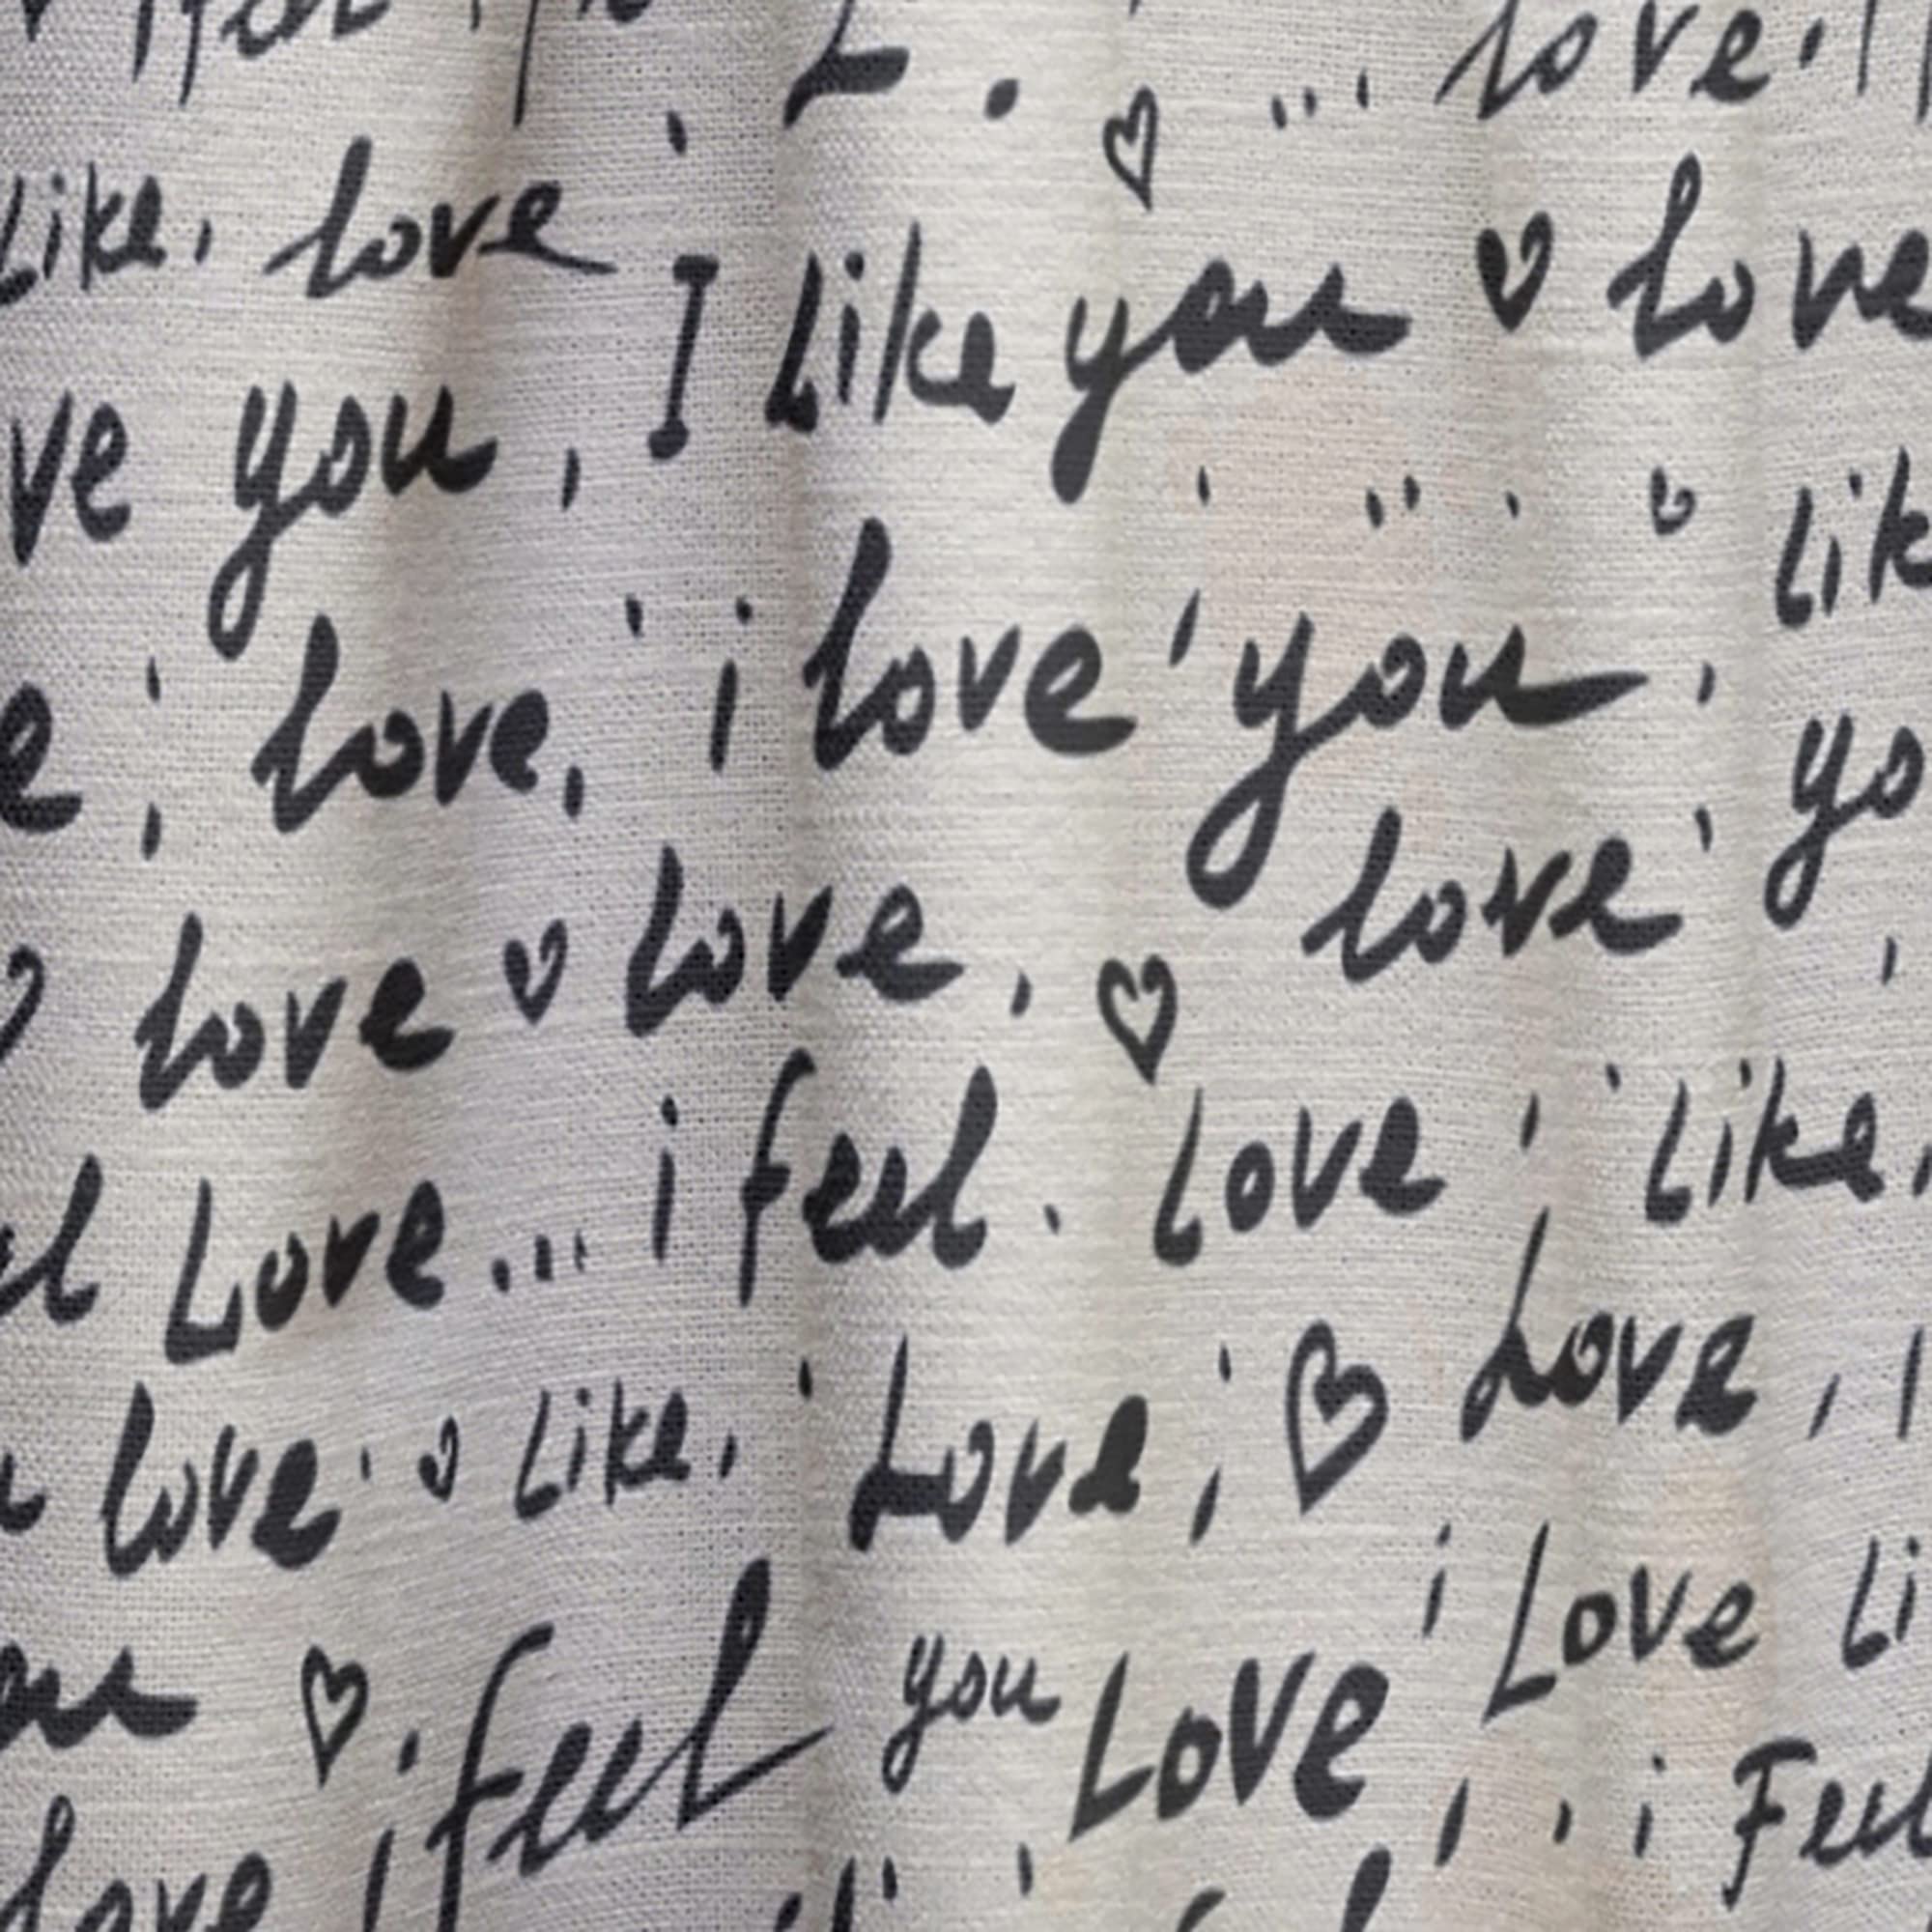 love.
like, love
I like you love
you,
love, i love you,
love love, love
Love... i feel. Love like,
love like, Love, Love,
i Love
feel you Love, i Feel
love